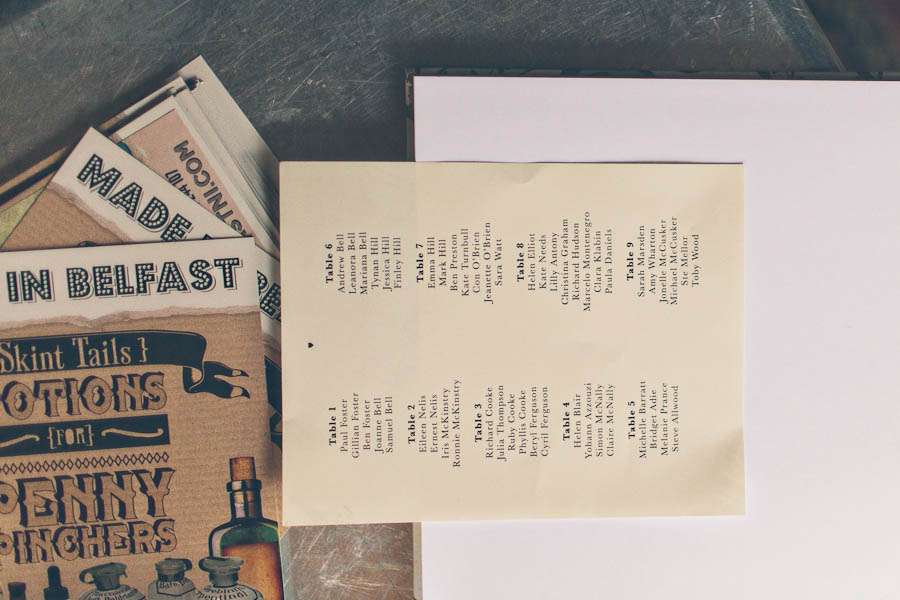 MADE
STNI.COM
IN BELFAST
Skint Tails}
POTIONS
{FOR}
PENNY
PINCHERS
Table 1
Paul Foster
Gillian Foster
Ben Foster
Joanne Bell
Samuel Bell
Table 2
Eileen Nelis
Ernest Nelis
Iris McKinstry
Ronnie McKinstry
Table 3
Richard Cooke
Julia Thompson
Ruby Cooke
Phyllis Cooke
Beryl Ferguson
Cyril Ferguson
Table 4
Helen Blair
Yohann Azzouzi
Simon McNally
Claire McNally
Table 5
Michelle Barratt
Bridget Adie
Melanie Prance
Steve Allwood
Table 6
Andrew Bell
Leanora Bell
Mariana Bell
Tynan Hill
Jessica Hill
Finley Hill
Table 7
Emma Hill
Mark Hill
Ben Preston
Kate Turnbull
Con O'Brien
Jeanette O'Brien
Sara Watt
Table 8
Helen Elliot
Kate Needs
Lilly Antony
Christina Graham
Richard Hudson
Marcelo Montenegro
Clara Klabin
Paula Daniels
Table 9
Sarah Marsden
Amy Wharton
Jonelle McCusker
Michael McCusker
Ste Mellor
Toby Wood